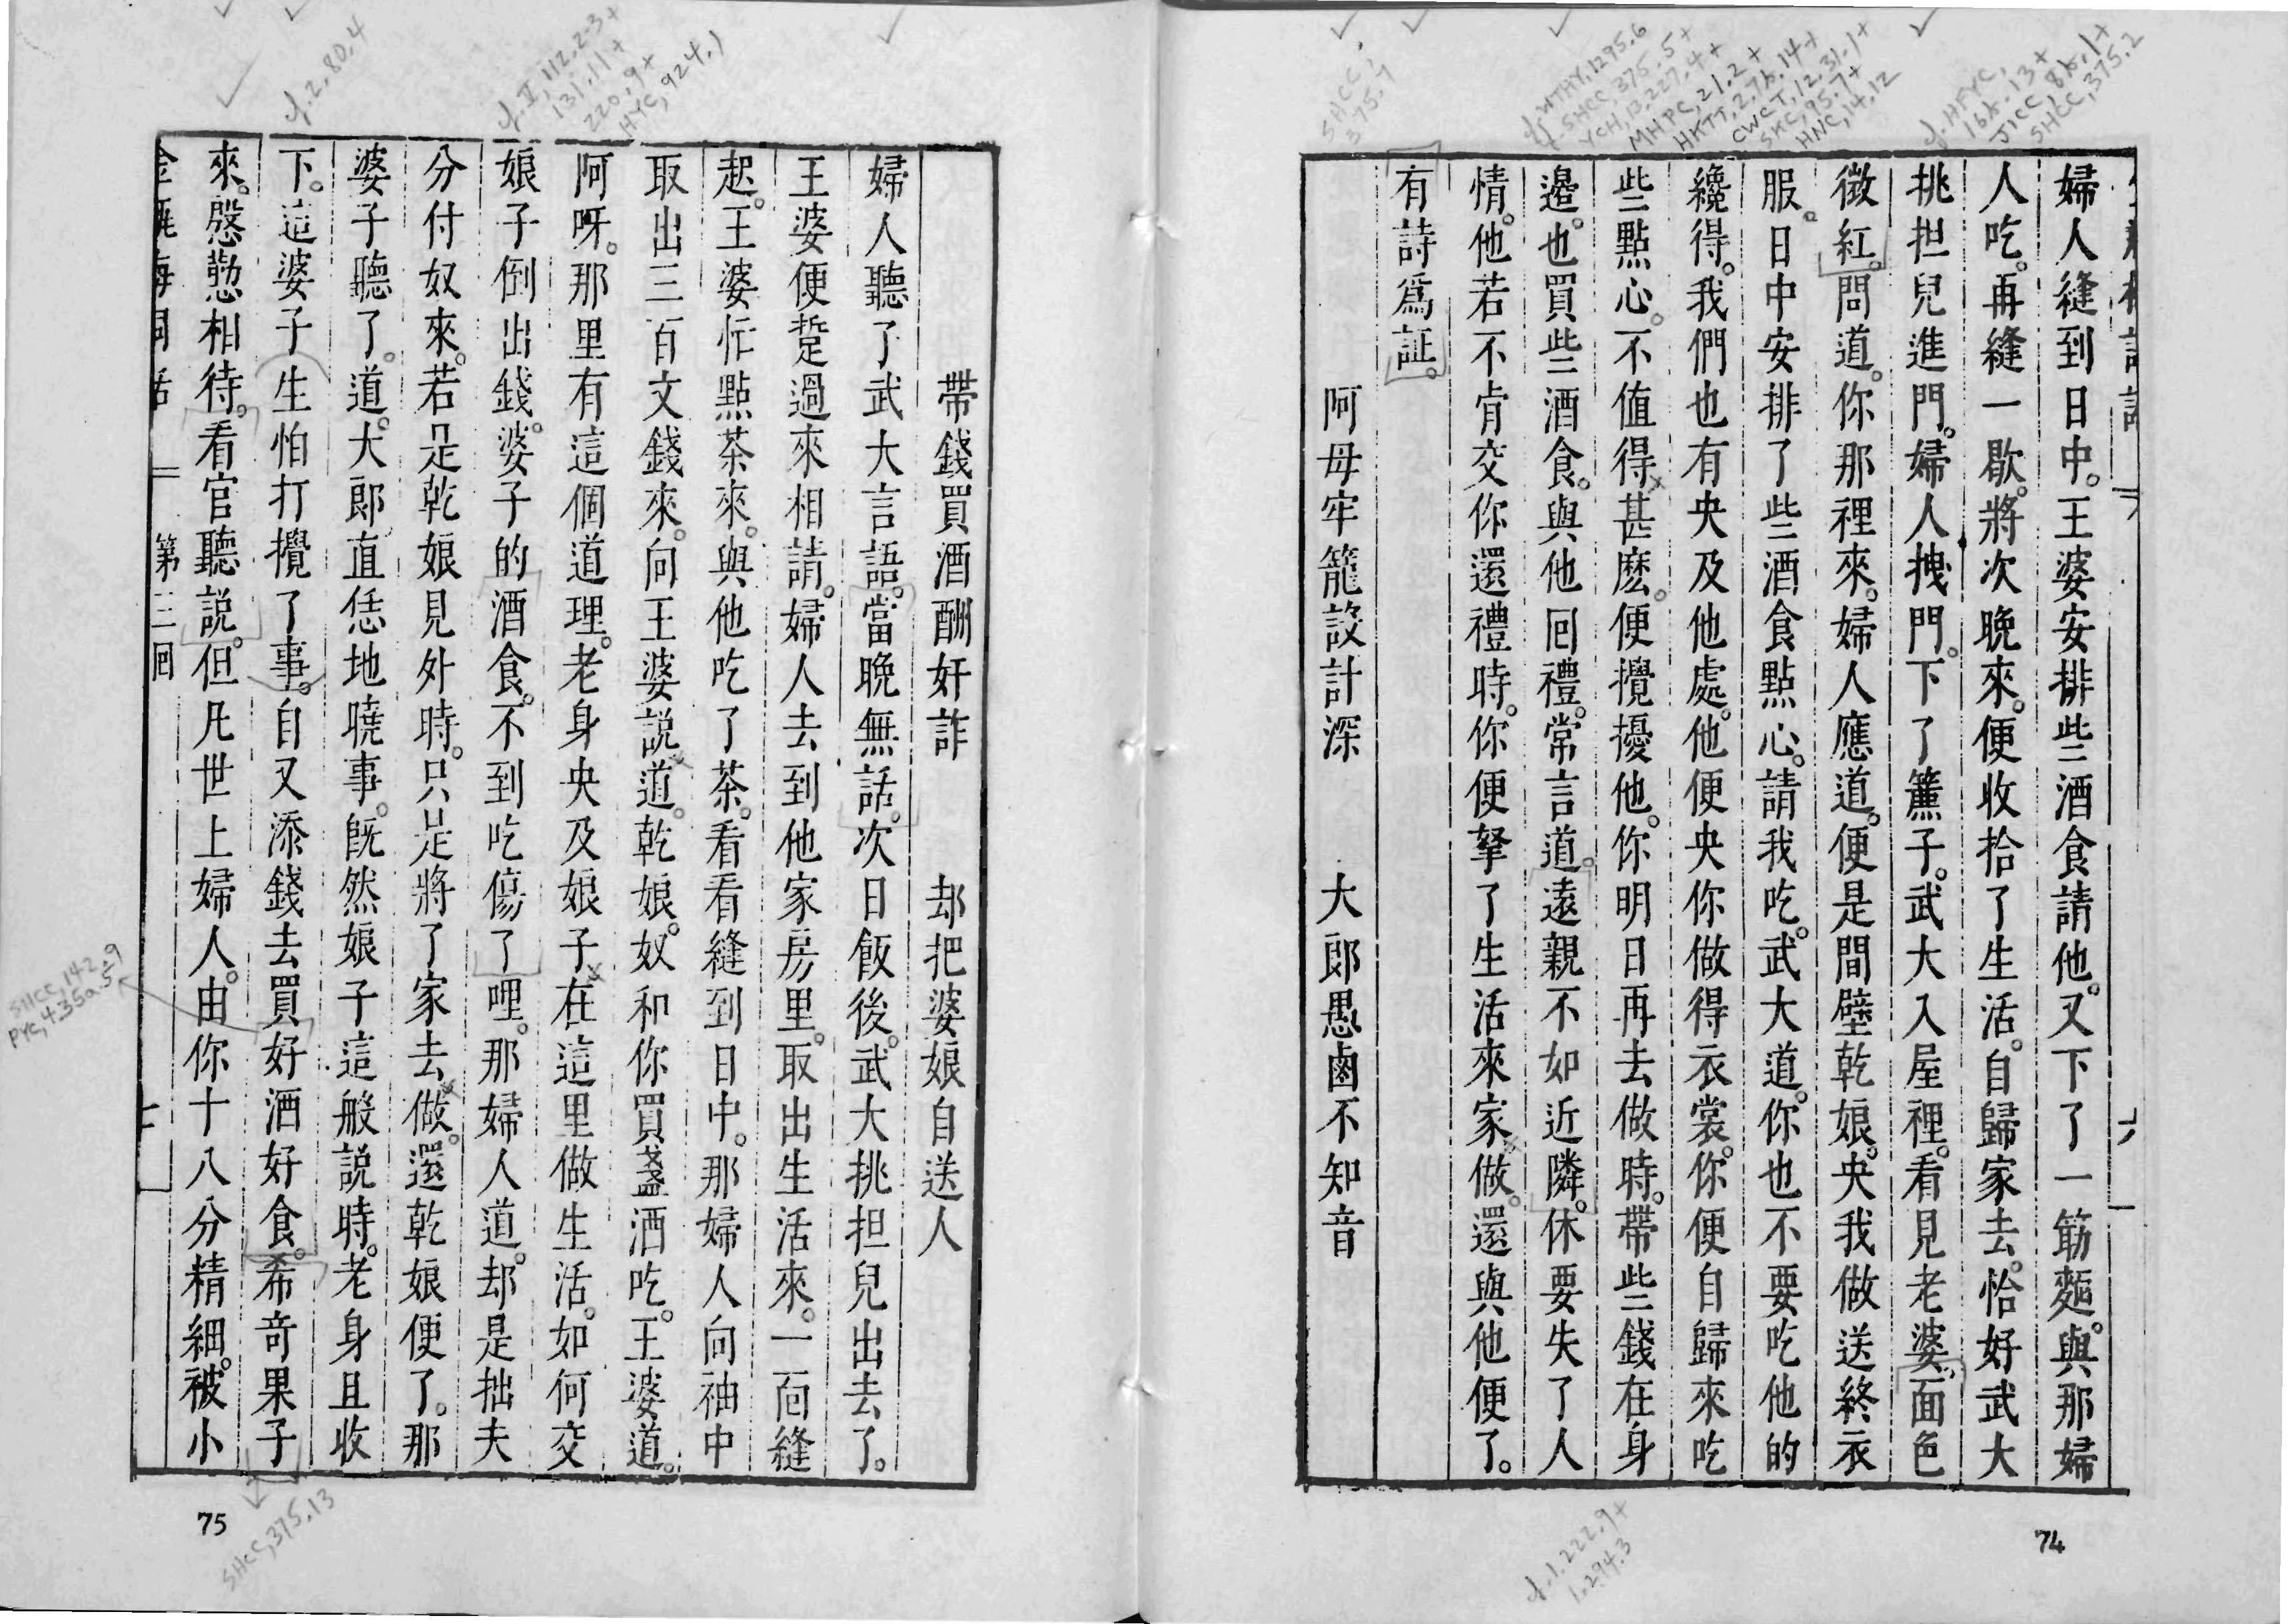 婦人縫到日中。王婆安排些酒食請他。又下了一筯麪。與那婦
人吃。再縫一歇。將次晚來。便收拾了生活。自歸家去。恰好武大
挑担兒進門。婦人拽門。下了簾子。武大入屋裡。看見老婆。面色
微紅。問道。你那裡來。婦人應道。便是間壁乾娘。央我做送終衣
服。日中安排了些酒食點心。請我吃。武大道。你也不要吃他的
纔得。我們也有央及他處。他便央你做得衣裳。你便自歸來吃
些點心。不值得甚麽。便攪擾他。你明日再去做時。帶些錢在身
邉。也買些酒食。與他回禮。常言道。遠親不如近隣。休要失了人
情。他若不肯交你還禮時。你便拏了生活來家做。還與他便了。
有詩爲証。
阿母牢籠設計深　大郎愚鹵不知音
74
帶錢買酒酬奸詐　却把婆娘自送人
婦人聽了武大言語。當晚無話。次日飯後。武大挑担兒出去了。
王婆便踅過來相請。婦人去到他家房里。取出生活來。一面縫
起。王婆忙點茶來。與他吃了茶。看看縫到日中。那婦人向袖中
取出三百文錢來。向王婆説道。乾娘。奴和你買盞酒吃。王婆道。
阿呀。那里有這個道理。老身央及娘子在這里做生活。如何交
娘子倒出錢。婆子的酒食。不到吃傷了哩。那婦人道。却是拙夫
分付奴來。若是乾娘見外時。只是將了家去做。還乾娘便了。那
婆子聽了。道。大郎直恁地曉事。旣然娘子這般説時。老身且收
下。這婆子生怕打攪了事。自又添錢去買好酒好食。希奇果子
來。慇懃相待。看官聽説。但凡世上婦人。由你十八分精細。被小
第三回
七
75
cf. 2, 80.4
cf. I, 112, 2-3+
131.11+
220.9+
HYC, 924.1
SHCC,
375.7
cf. WTHY, 1295.6
SHCC, 375.5+
YCH, 13.227.4+
MHPC, 21.2+
HKTT, 2.7b.14+
CWCT, 12.31.1+
SKC, 95.7+
HNC, 14.12
cf. HFYC,
16b.13+
JICC, 8b.1+
SHCC, 375.2
SHCC, 142.9
PYC, 4.35a.5
SHCC, 375.13
cf. 1.222.9+
1.294.3